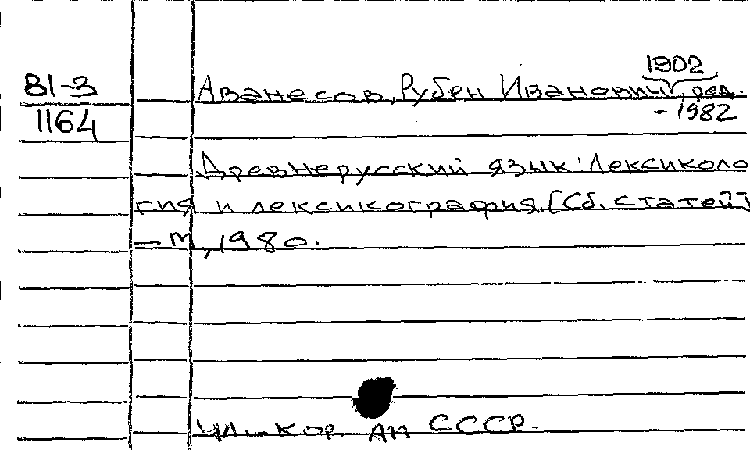 1902
81-3 Аванесов, Рубен Иванович, ред.
1164 - 1982
Древнерусский язык: Лексиколо
гия и лексикография. [Сб. статей]
— М., 1980.
Чл.-кор. АН СССР.